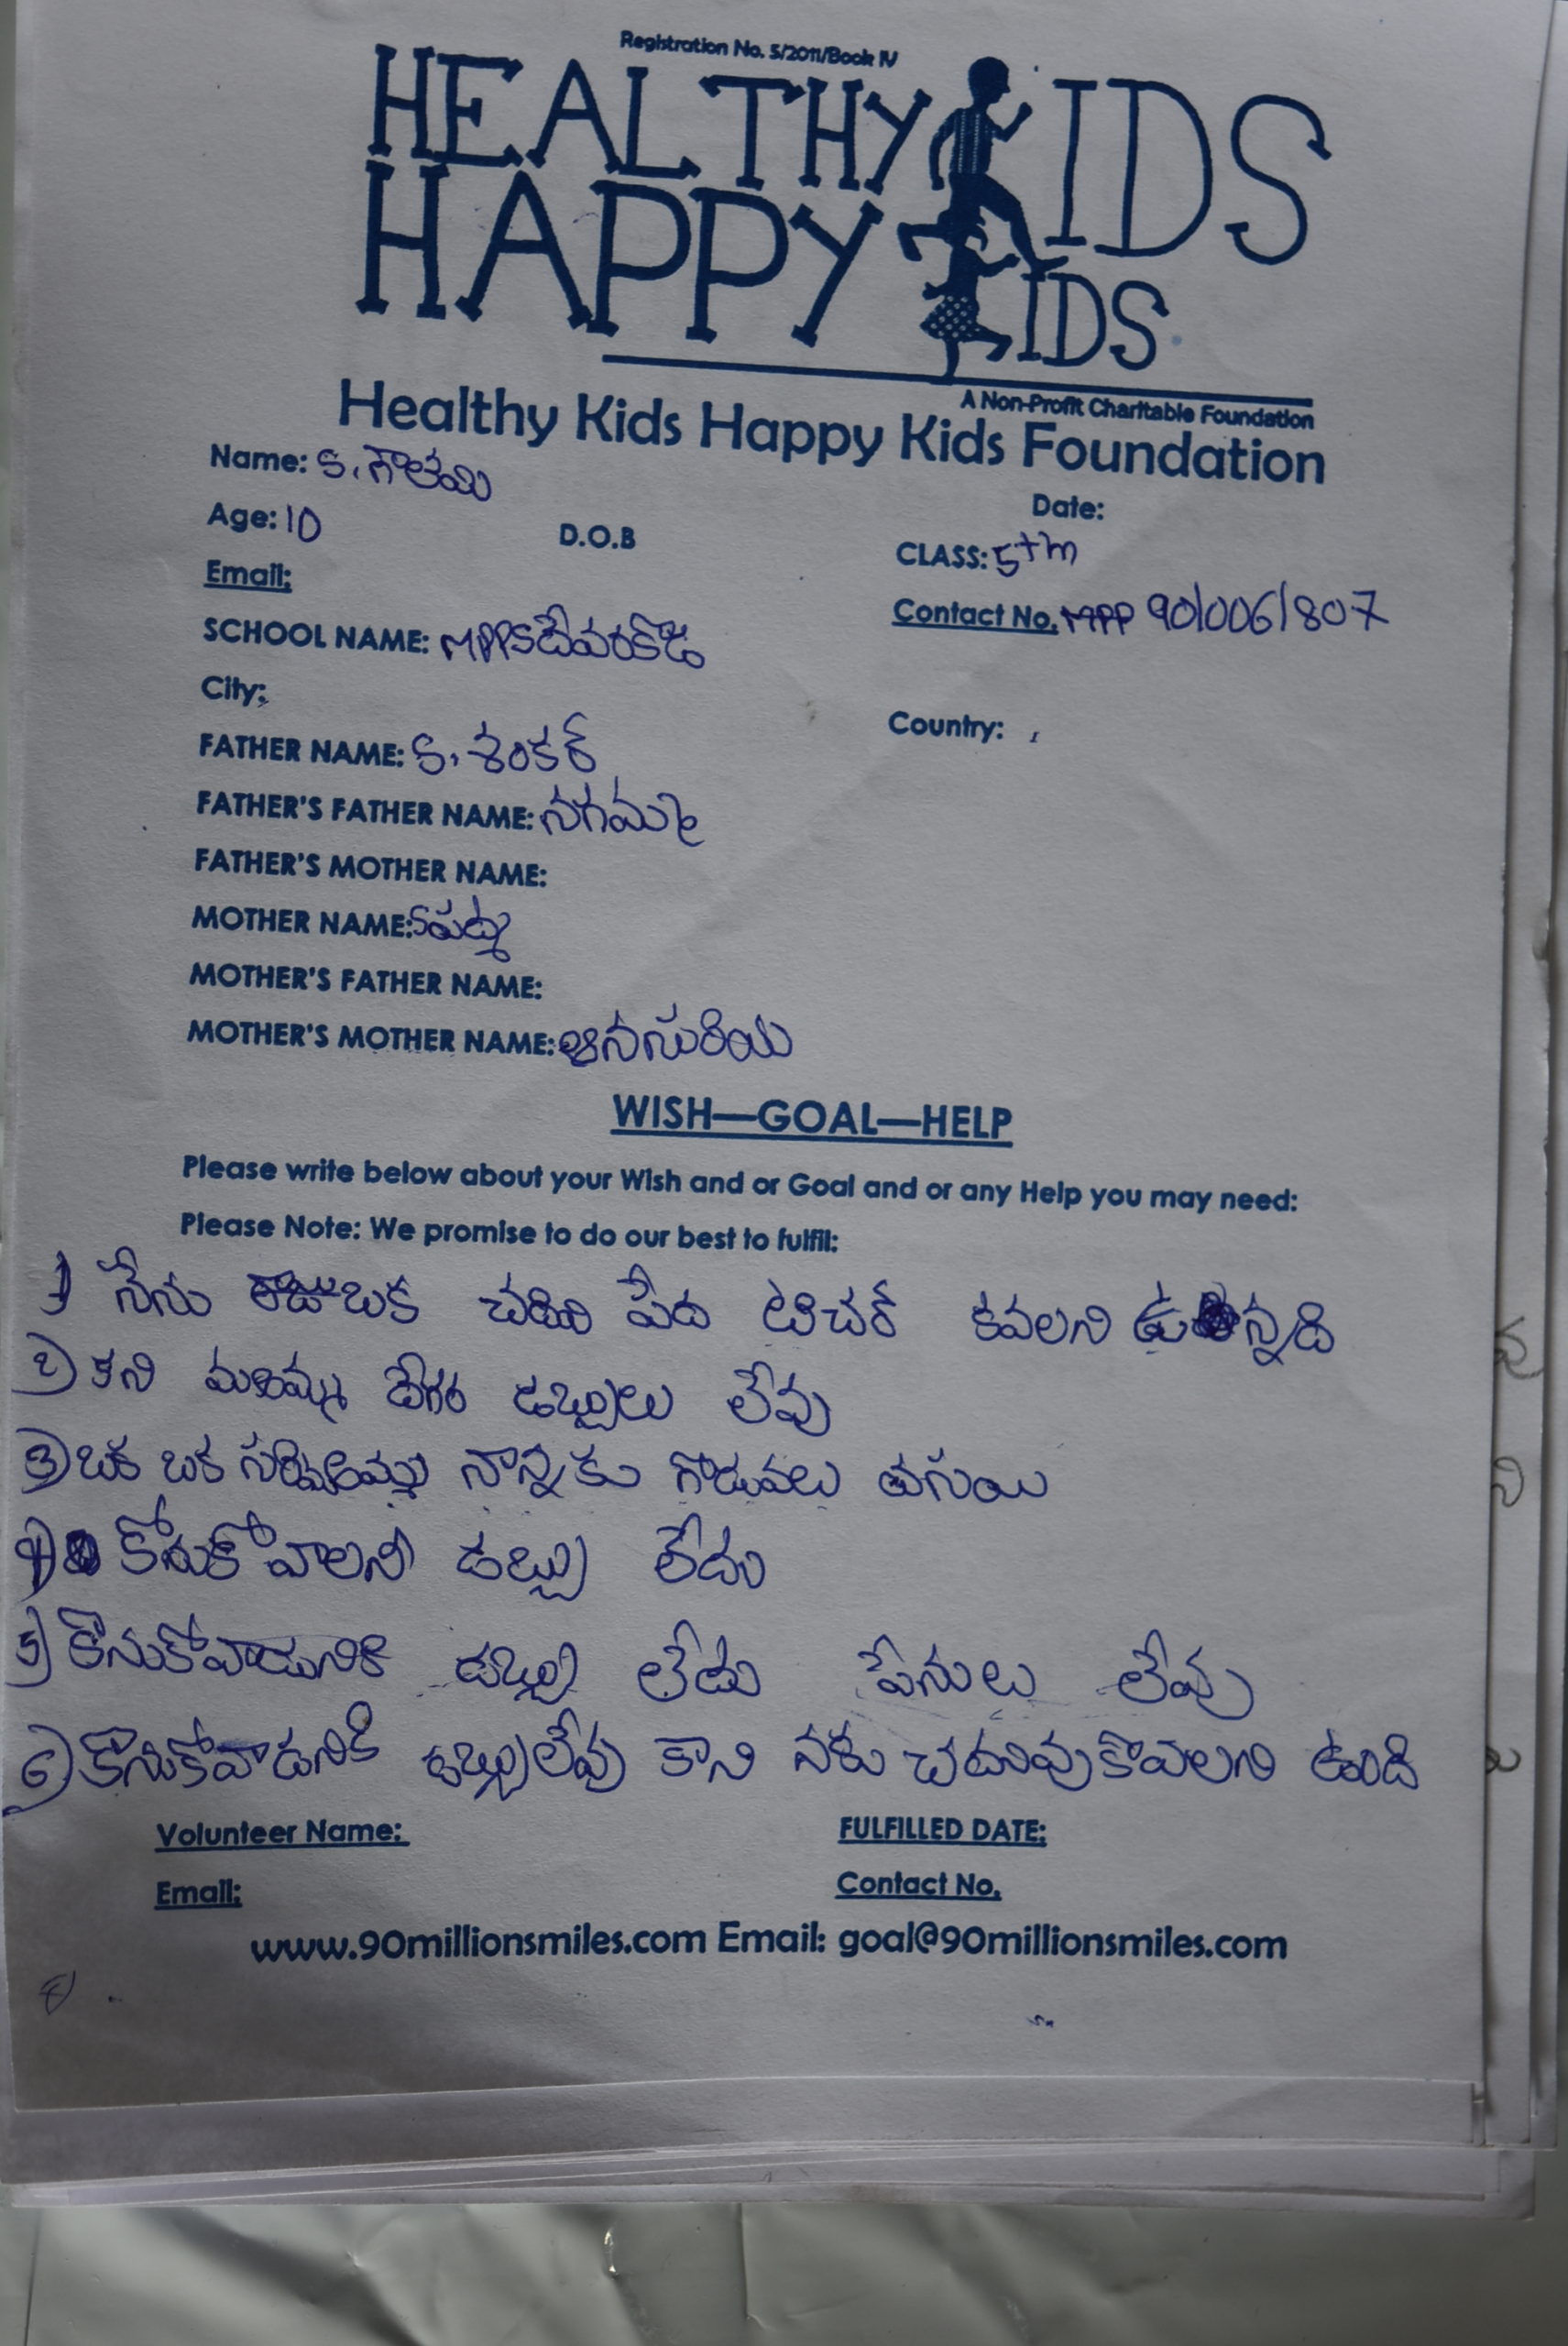 Registration No. 5/2011/Book IV
HEALTHY KIDS
HAPPY KIDS
A Non-Profit Charitable Foundation
Healthy Kids Happy Kids Foundation
Name: S. గౌతమి
Date:
Age: 10 D.O.B
CLASS: 5th
Email:
Contact No. MPP 9010061807
SCHOOL NAME: MPPS దేవరకొండ
City:
Country:
FATHER NAME: S. శంకర్
FATHER'S FATHER NAME: నగమ్మ
FATHER'S MOTHER NAME:
MOTHER NAME: S పద్మ
MOTHER'S FATHER NAME:
MOTHER'S MOTHER NAME: అనసురియ
WISH—GOAL—HELP
Please write below about your Wish and or Goal and or any Help you may need:
Please Note: We promise to do our best to fulfil:
1) నేను ఒక పేద టిచర్ కవలని ఉన్నది
2) కని డబ్బులు లేవు
3) ఒక ఒక నాన్నకు గొడువలు
4) కోనుకోవాలని డబ్బు లేదు
5) కొనుకోవాడునికి డబ్బు లేదు పేనులు లేవు
6) కొనుకోవాడనికి డబ్బులేవు కాని నకు చదువుకొవలని ఉంది
Volunteer Name:
FULFILLED DATE:
Email:
Contact No.
www.90millionsmiles.com Email: goal@90millionsmiles.com